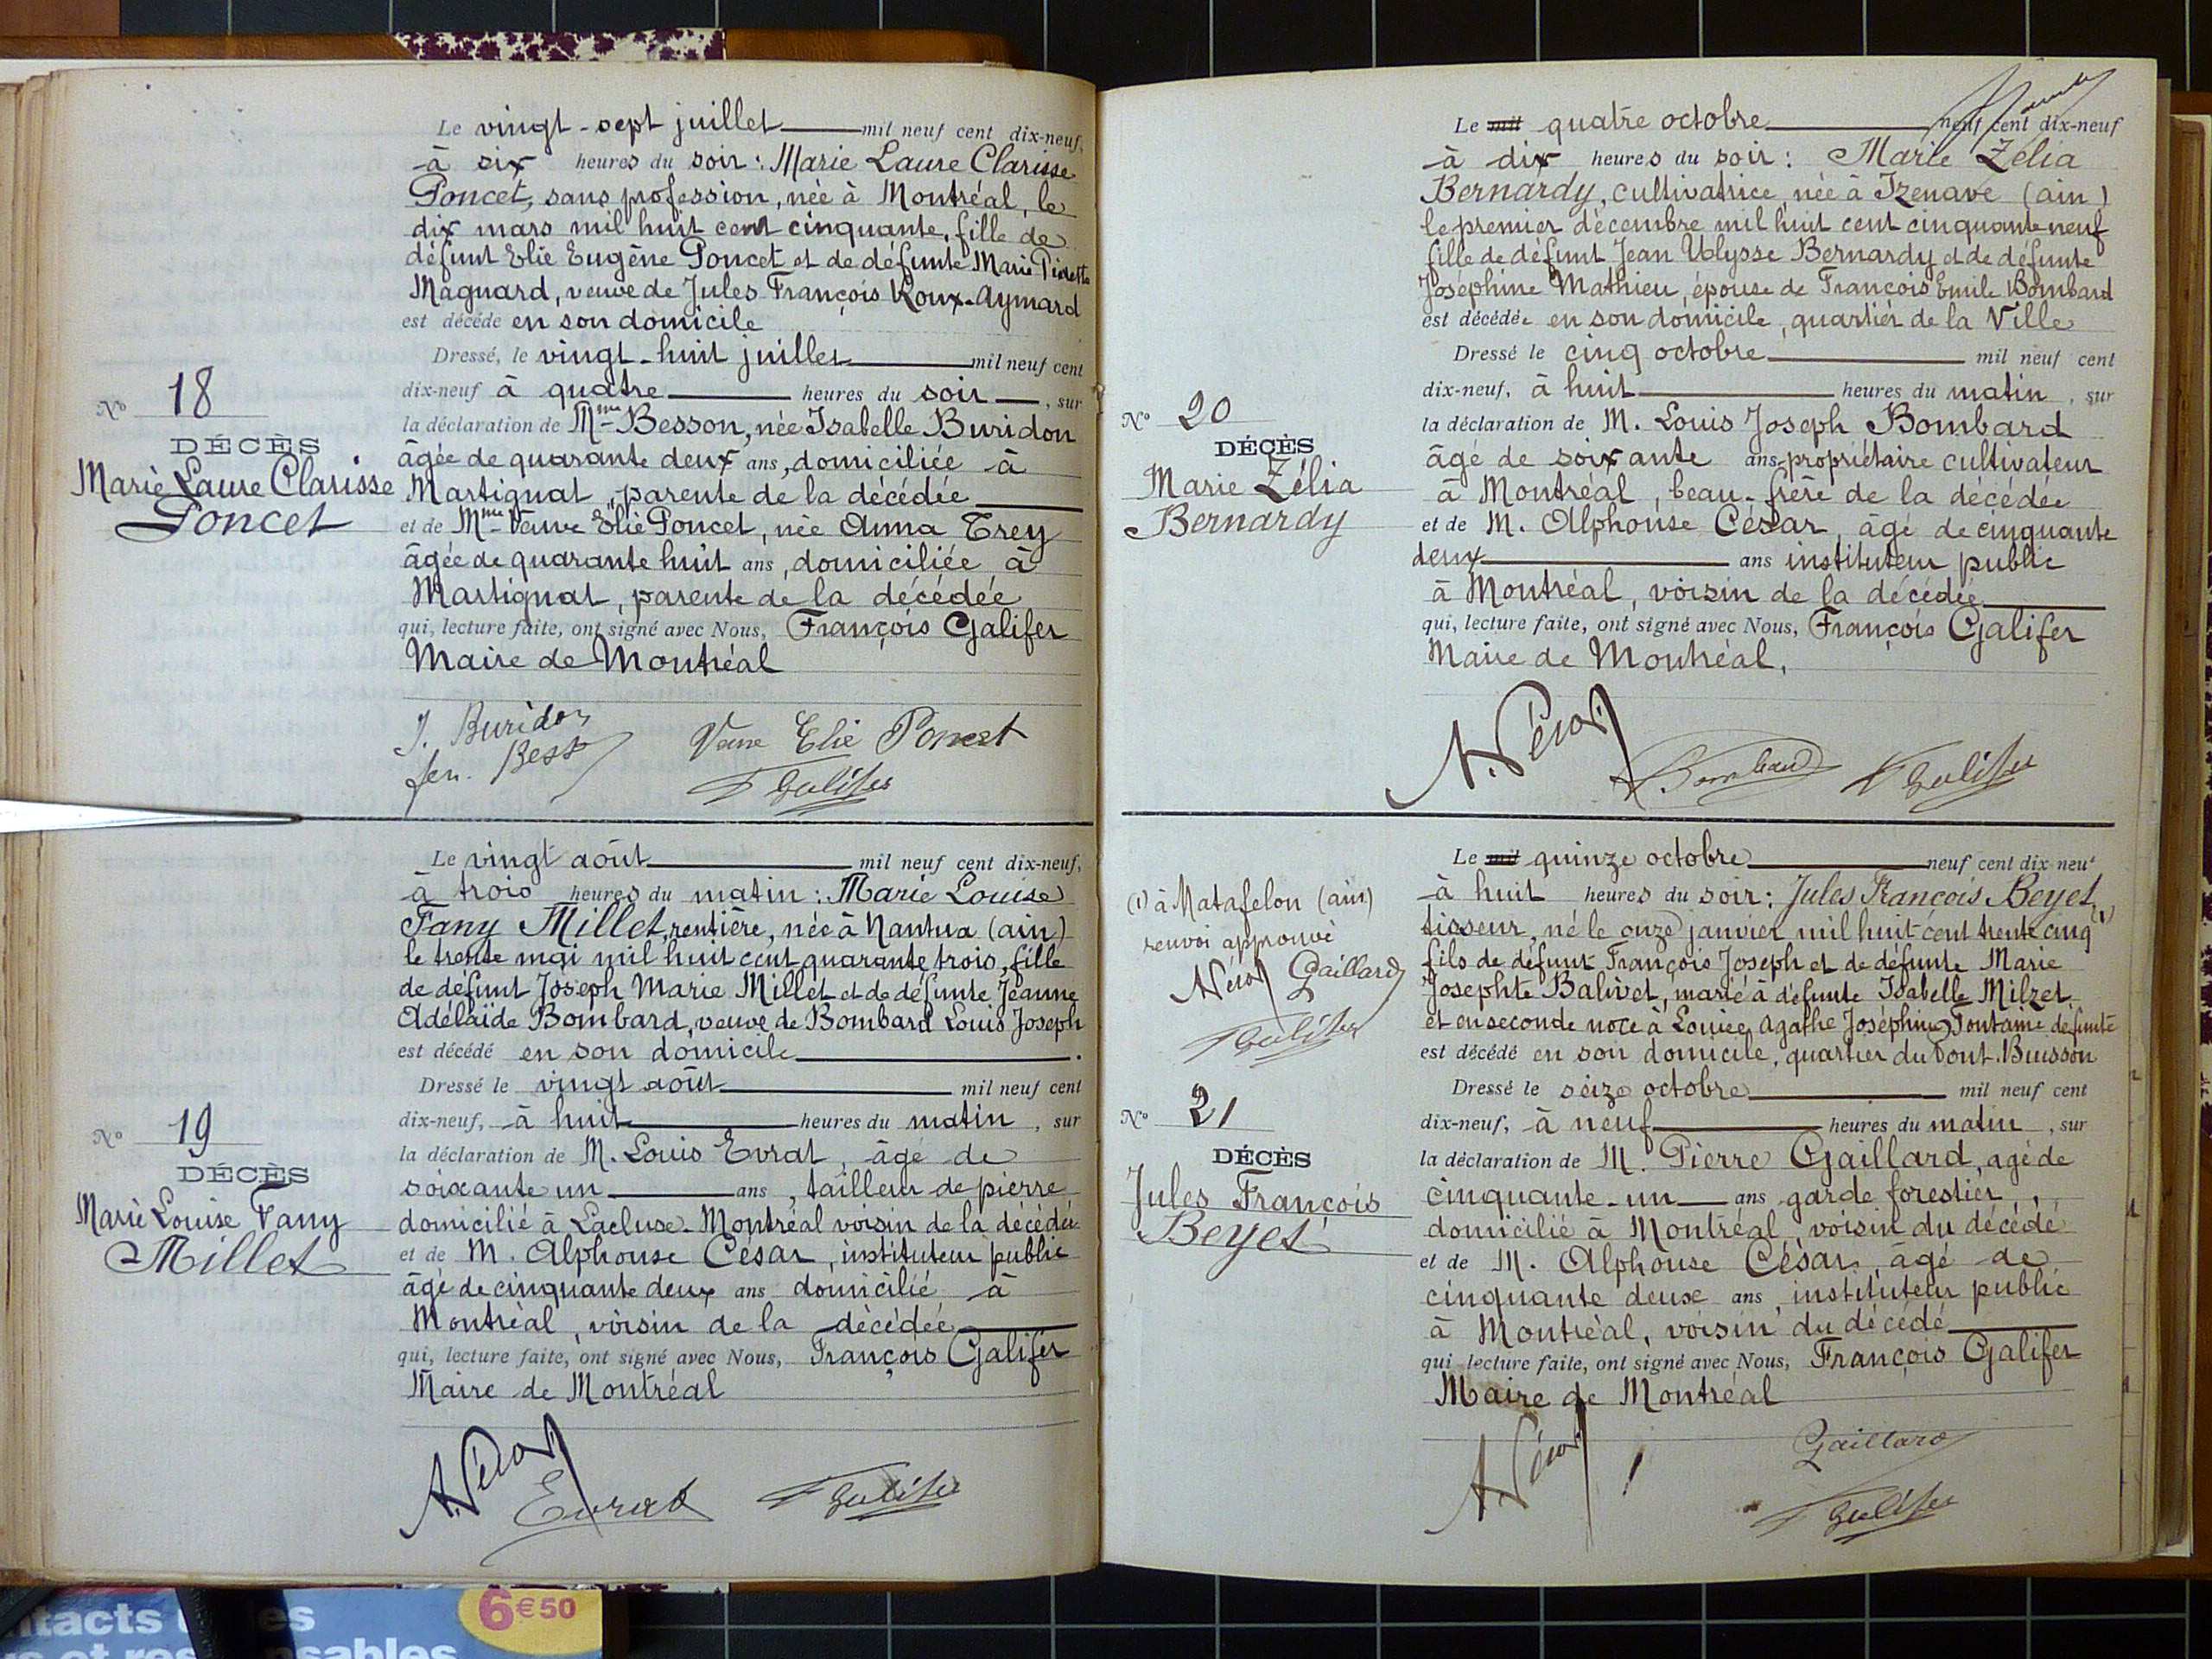 Le vingt-sept juillet mil neuf cent dix-neuf,
à six heures du soir : Marie Laure Clarisse
Poncet, sans profession, née à Montréal, le
dix mars mil huit cent cinquante, fille de
défunt Elie Eugène Poncet et de défunte Marie
Maguard, veuve de Jules François Roux-Aymard
est décédé en son domicile
Dressé, le vingt-huit juillet mil neuf cent
dix-neuf à quatre heures du soir, sur
la déclaration de Mme Besson, née Isabelle Buridon
âgée de quarante deux ans, domiciliée à
Martignat, parente de la décédée
et de Mme Veuve Elie Poncet, née Anna Trey
âgée de quarante huit ans, domiciliée à
Martignat, parente de la décédée
qui, lecture faite, ont signé avec Nous, François Galifer
Maire de Montréal
No 18
DÉCÈS
Marie Laure Clarisse
Poncet
J. Buridon
Bess
Veuve Elie Poncet
F Galifer
Le vingt août mil neuf cent dix-neuf,
à trois heures du matin : Marie Louise
Fany Millet, rentière, née à Nantua (ain)
le trente mai mil huit cent quarante trois, fille
de défunt Joseph Marie Millet et de défunte Jeanne
Adélaïde Bombard, veuve de Bombard Louis Joseph
est décédé en son domicile.
Dressé le vingt août mil neuf cent
dix-neuf, à huit heures du matin, sur
la déclaration de M. Louis Evrat, âgé de
soixante un ans, tailleur de pierre
domicilié à Lacluse-Montréal voisin de la décédée
et de M. Alphonse César, instituteur public
âgé de cinquante deux ans domicilié à
Montréal, voisin de la décédée
qui, lecture faite, ont signé avec Nous, François Galifer
Maire de Montréal
No 19
DÉCÈS
Marie Louise Fany
Millet
A. César
Evrat
F Galifer
Le mil quatre octobre neuf cent dix-neuf
à dix heures du soir : Marie Zélia
Bernardy, cultivatrice, née à Izenave (ain)
le premier décembre mil huit cent cinquante neuf
fille de défunt Jean Ulysse Bernardy et de défunte
Joséphine Mathieu, épouse de François Emile Bombard
est décédée en son domicile, quartier de la Ville
Dressé le cinq octobre mil neuf cent
dix-neuf, à huit heures du matin, sur
la déclaration de M. Louis Joseph Bombard
âgé de soixante ans, propriétaire cultivateur
à Montréal, beau-frère de la décédée
et de M. Alphonse César, âgé de cinquante
deux ans instituteur public
à Montréal, voisin de la décédée
qui, lecture faite, ont signé avec Nous, François Galifer
Maire de Montréal,
No 20
DÉCÈS
Marie Zélia
Bernardy
A. César
Bombard
F Galifer
Le mil quinze octobre neuf cent dix neuf
à huit heures du soir : Jules François Beyet (1)
tisseur, né le onze janvier mil huit cent trente cinq
fils de défunt François Joseph et de défunte Marie
Josephte Balivet, marié à défunte Isabelle Milzet
et en seconde noce à Louise Agathe Joséphine Fontaine défunte
est décédé en son domicile, quartier du Pont-Buisson
Dressé le seize octobre mil neuf cent
dix-neuf, à neuf heures du matin, sur
la déclaration de M. Pierre Gaillard, agé de
cinquante-un ans garde forestier,
domicilié à Montréal, voisin du décédé
et de M. Alphonse César, âgé de
cinquante deux ans, instituteur public
à Montréal, voisin du décédé
qui lecture faite, ont signé avec Nous, François Galifer
Maire de Montréal
(1) à Matafelon (ain)
renvoi approuvé
A César Gaillard
F Galifer
No 21
DÉCÈS
Jules François
Beyet
A. César
Gaillard
F Galifer
6€50